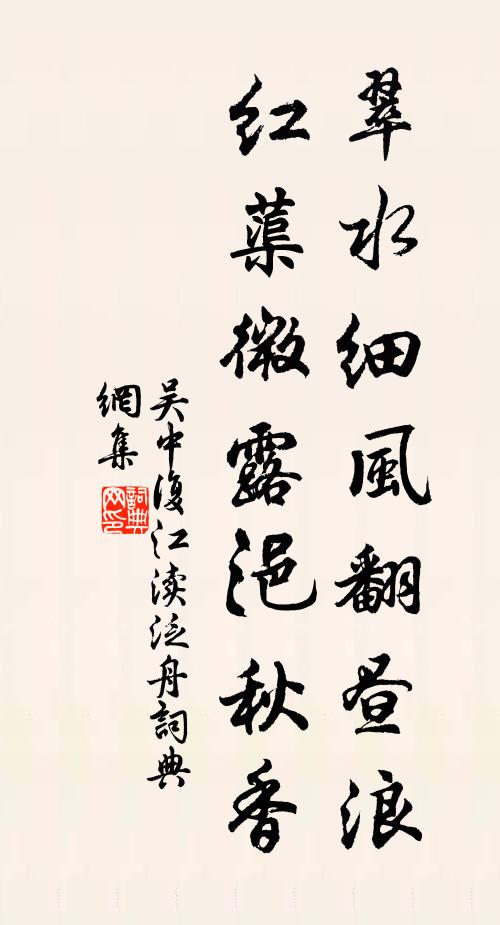 翠水细風翻昼浪
红蕖微露浥秋香
吴中復江渎泛舟詞典
網集
詞典
网印